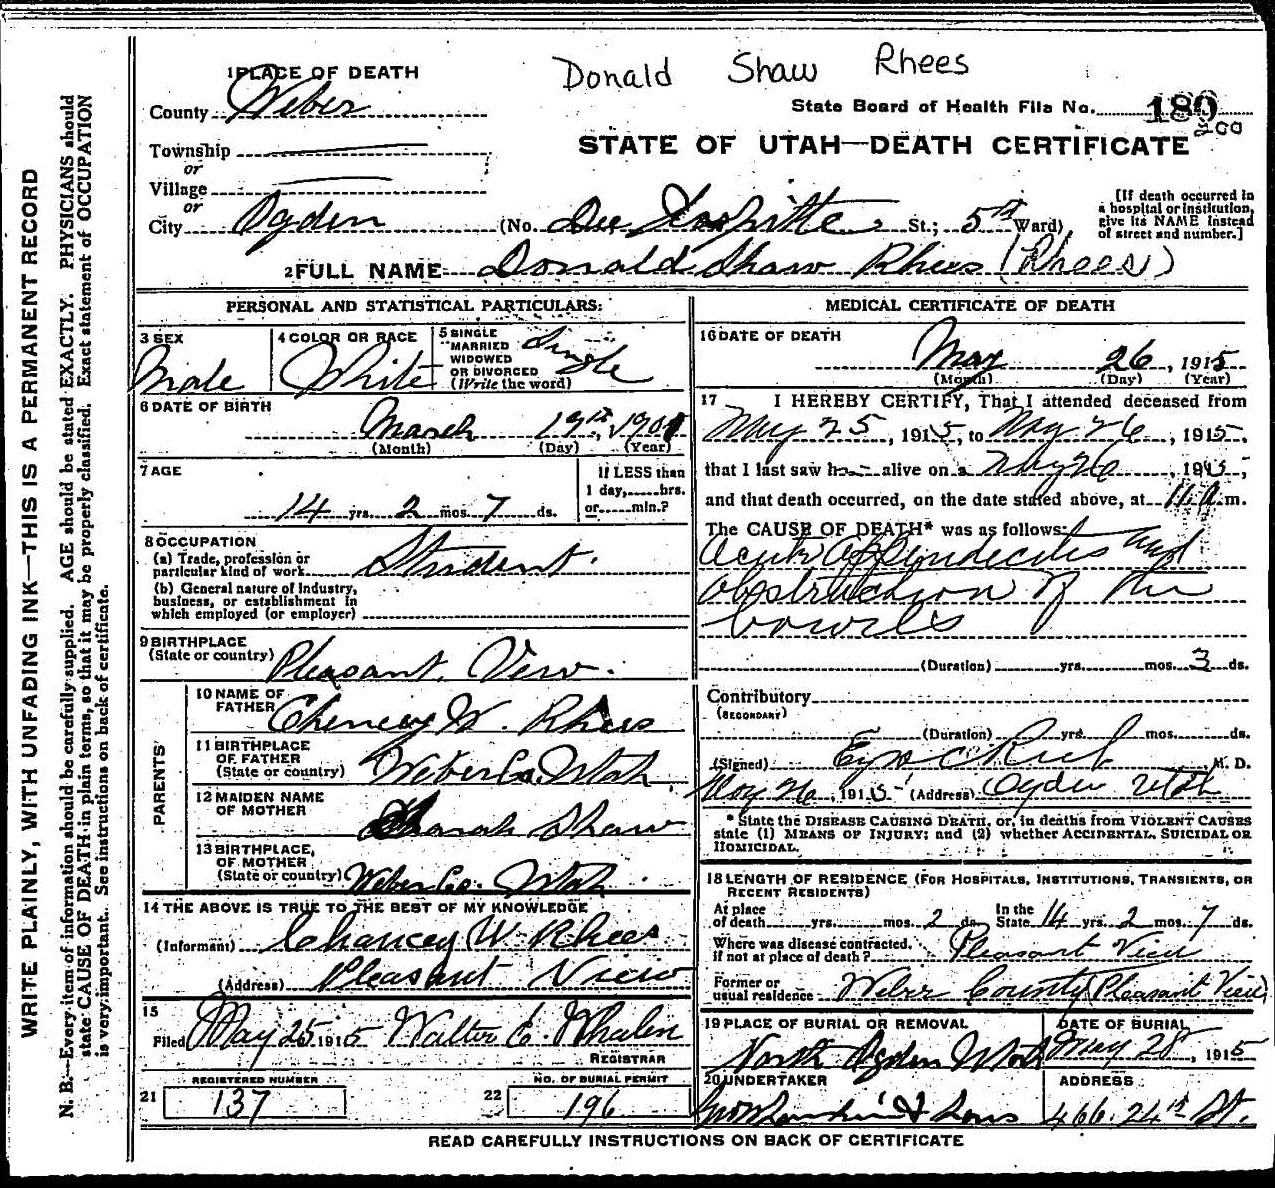 Donald Shaw Rhees
1 PLACE OF DEATH
County Weber
State Board of Health File No. 180
200
STATE OF UTAH—DEATH CERTIFICATE
Township
or
Village
or
City Ogden (No. Dee Hospital St.; 5th Ward)
[If death occurred in a hospital or institution, give its NAME instead of street and number.]
2 FULL NAME Donald Shaw Rhees (Rhees)
PERSONAL AND STATISTICAL PARTICULARS:
3 SEX
Male
4 COLOR OR RACE
White
5 SINGLE
MARRIED
WIDOWED
OR DIVORCED
(Write the word)
Single
6 DATE OF BIRTH
March 19th, 1901
(Month) (Day) (Year)
7 AGE
14 yrs. 2 mos. 7 ds.
If LESS than
1 day, hrs.
or min.?
8 OCCUPATION
(a) Trade, profession or
particular kind of work Student.
(b) General nature of industry,
business, or establishment in
which employed (or employer)
9 BIRTHPLACE
(State or country) Pleasant View.
PARENTS
10 NAME OF
FATHER Chencey W. Rhees
11 BIRTHPLACE
OF FATHER
(State or country) Weber Co. Utah
12 MAIDEN NAME
OF MOTHER Sarah Shaw
13 BIRTHPLACE,
OF MOTHER
(State or country) Weber Co. Utah
14 THE ABOVE IS TRUE TO THE BEST OF MY KNOWLEDGE
(Informant) Chancey W. Rhees
(Address) Pleasant View
15
Filed May 25 1915 Walter E. Whalen
REGISTRAR
REGISTERED NUMBER
21 137
NO. OF BURIAL PERMIT
22 196
MEDICAL CERTIFICATE OF DEATH
16 DATE OF DEATH
May 26, 1915
(Month) (Day) (Year)
17 I HEREBY CERTIFY, That I attended deceased from
May 25, 1915, to May 26, 1915,
that I last saw h alive on May 26, 1915,
and that death occurred, on the date stated above, at m.
The CAUSE OF DEATH* was as follows:
Acute Appendecitis and
obstruction of the
bowels
(Duration) yrs. mos. 3 ds.
Contributory
(SECONDARY)
(Duration) yrs. mos. ds.
(Signed) M. D.
May 26, 1915 (Address) Ogden Utah
* State the DISEASE CAUSING DEATH, or, in deaths from VIOLENT CAUSES
state (1) MEANS OF INJURY; and (2) whether ACCIDENTAL, SUICIDAL OR
HOMICIDAL.
18 LENGTH OF RESIDENCE (FOR HOSPITALS, INSTITUTIONS, TRANSIENTS, OR
RECENT RESIDENTS)
At place
of death yrs. mos. 2 ds. In the State 14 yrs. 2 mos. 7 ds.
Where was disease contracted,
if not at place of death? Pleasant View
Former or
usual residence Weber County Pleasant View
19 PLACE OF BURIAL OR REMOVAL
North Ogden Utah
DATE OF BURIAL
May 28, 1915
20 UNDERTAKER
& Sons
ADDRESS
466. 24th St.
READ CAREFULLY INSTRUCTIONS ON BACK OF CERTIFICATE
WRITE PLAINLY, WITH UNFADING INK—THIS IS A PERMANENT RECORD
N. B.—Every item of information should be carefully supplied. AGE should be stated EXACTLY. PHYSICIANS should
state CAUSE OF DEATH in plain terms, so that it may be properly classified. Exact statement of OCCUPATION
is very important. See instructions on back of certificate.